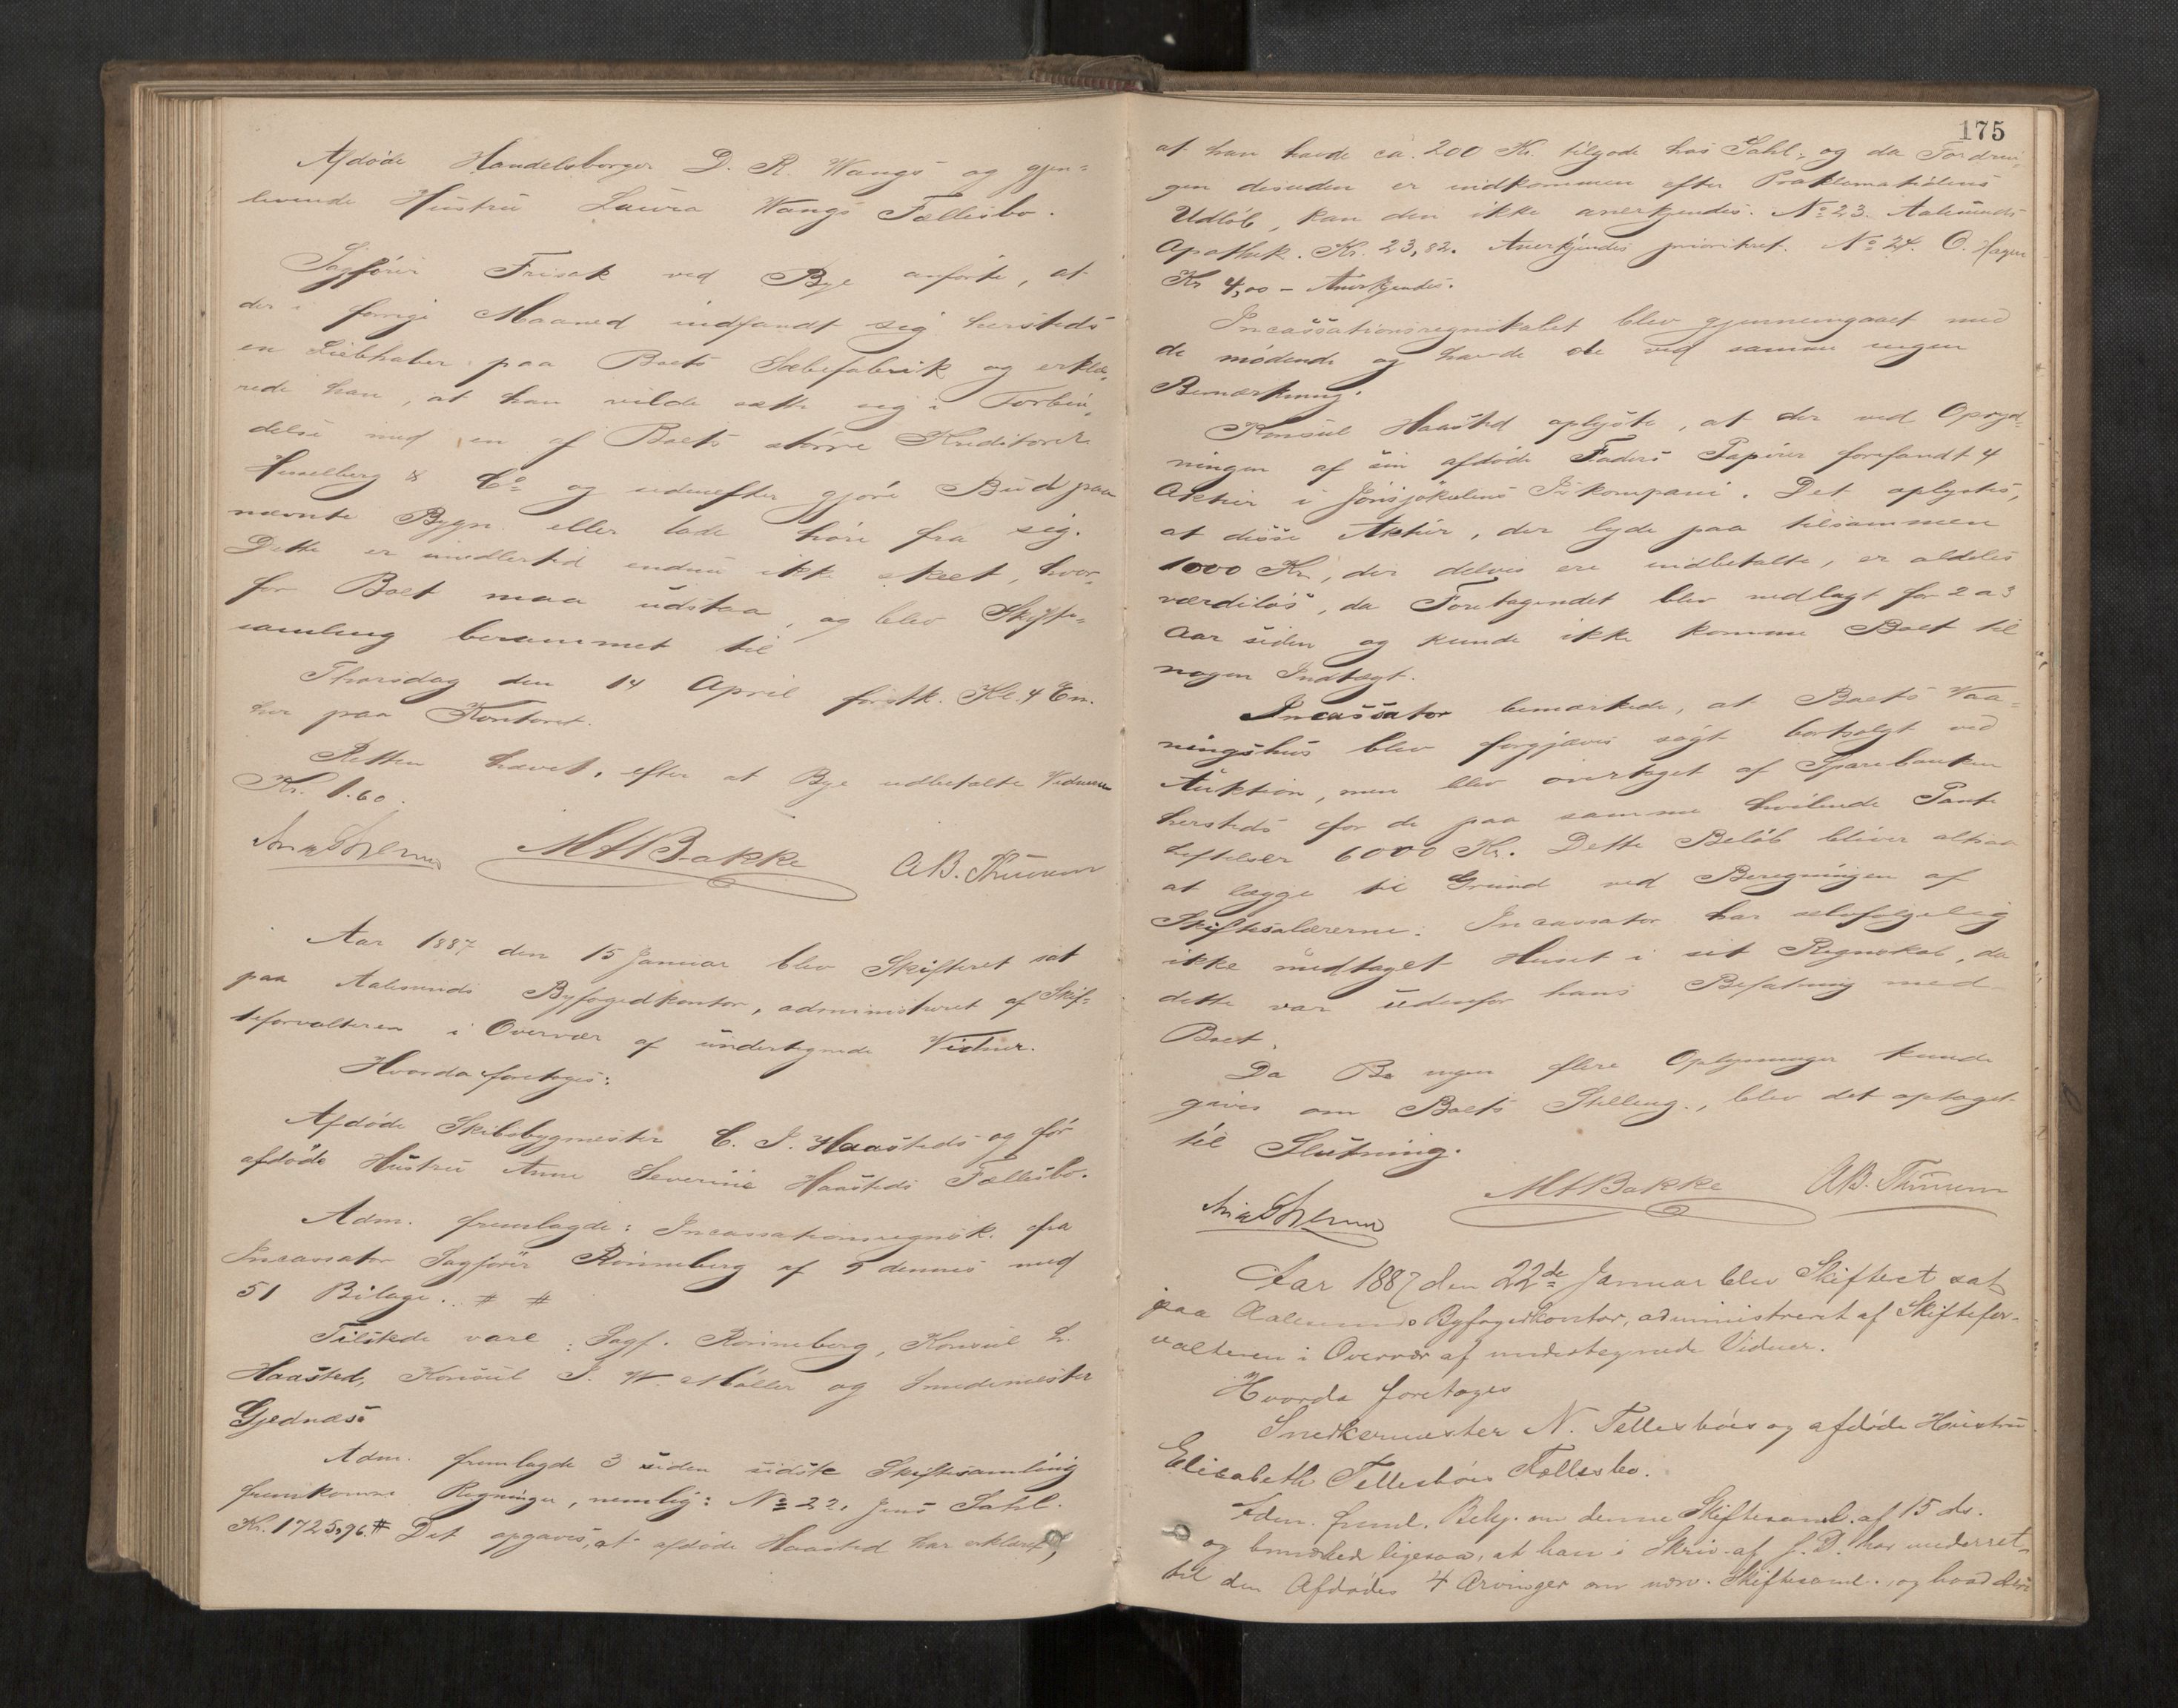 Afdøde Handelsborger D. R. Wangs og gjen-
levende Hustru Laura Wangs Fællesbo.
Sagfører Frisak ved Bye anførte, at
der i forrige Maaned indfandt sig hersteds
en Liebhaber paa Boets Sæbefabrik og erklæ-
rede han, at han vilde sætte sig i Forbin-
delse med en af Boets større Kreditorer
Huselberg & Co og sidenefter gjøre Bud paa
nævnte Bygn. eller lade høre fra sig.
Dette er imidlertid endnu ikke skeet, hvor-
for Boet maa udstaa, og blev Skifte-
samling berammet til
Thorsdag den 14 April førstk. Kl. 4 Em.
her paa Kontoret.
Retten hævet, efter at Bye udbetalte Vidnerne
Kr. 1.60.
MABakke A.B. Thuesen
Aar 1887 den 15 Januar blev Skifteret sat
paa Aalesunds Byfogedkontor, administreret af Skif-
teforvalteren i Overvær af undertegnede Vidner.
Hvorda foretoges:
Afdøde Skibsbygmester C. J. Haasteds og før
afdøde Hustru Anne Severine Haasteds Fællesbo.
Adm. fremlagde: Incassationsregnsk. fra
Incassator Sagfører Rønneberg af 5 dennes med
51 Bilage. # #
Tilstede vare: Sagf. Rønneberg, Konsul L.
Haasted, Konsul J. W. Møller og Smedemester
Gjednæss
Adm. fremlagde 3 siden sidste Skiftesamling
fremkomne Regninger, nemlig: No 22. Jens Sahl.
Kr. 1725,96. # Det opgaves, at afdøde Haasted har erklæret,
175
at han havde ca. 200 Kr. tilgode hos Sahl, og da Fordrin-
gen desuden er indkommen efter Proklamatidens
Udløb, kan den ikke anerkjendes. No 23. Aalesunds
Apothek. Kr. 23,82. Anerkjendes prioritet. No 24. O. Hagen
Kr 4,00 - Anerkjendes.
Incassationsregnskabet blev gjennemgaaet med
de mødende og havde de ved samme ingen
Bemærkning.
Konsul Haasted oplyste, at der ved Opryd-
ningen af sin afdøde Faders Papirer forefandt 4
Aktier i Jonsjøkulens Iskompani. Det oplystes,
at disse Aktier, der lyde paa tilsammen
1000 Kr, der delvis ere indbetalte, er aldeles
værdiløs, da Foretagendet blev nedlagt for 2 a 3
Aar siden og kunde ikke komme Boet til
nogen Indtægt.
Incassator bemærkede, at Boets Vaa-
ningshus blev forgjæves søgt bortsolgt ved
Auktion, men blev overtaget af Sparebanken
hersteds for de paa samme hvilende Pante-
heftelser 6000 Kr. Dette Beløb bliver altsaa
at lægge til Grund ved Beregningen af
Skiftesalærerne. Incassator har selvfølgelig
ikke medtaget Huset i sit Regnskab, da
dette var udenfor hans Befatning med
Boet.
Da Bo ingen flere Oplysninger kunde
gives om Boets Stilling, blev det optaget
til Slutning.
MABakke A.B. Thuesen
Aar 1887 den 22de Januar blev Skifteret sat
paa Aalesunds Byfogedkontor, administreret af Skiftefor-
valteren i Overvær af undertegnede Vidner.
Hvorda foretoges
Snedkermester N. Tellesbøes og afdøde Hustru
Elisabeth Tellesbøes Fællesbo.
Adm. freml. Bekj. om denne Skiftesaml. af 15 ds.
og bemærkede ligesaa, at han i Skriv. af s. D. har underret-
tet den Afdødes 4 Arvinger om nærv. Skiftesaml. og hvad der